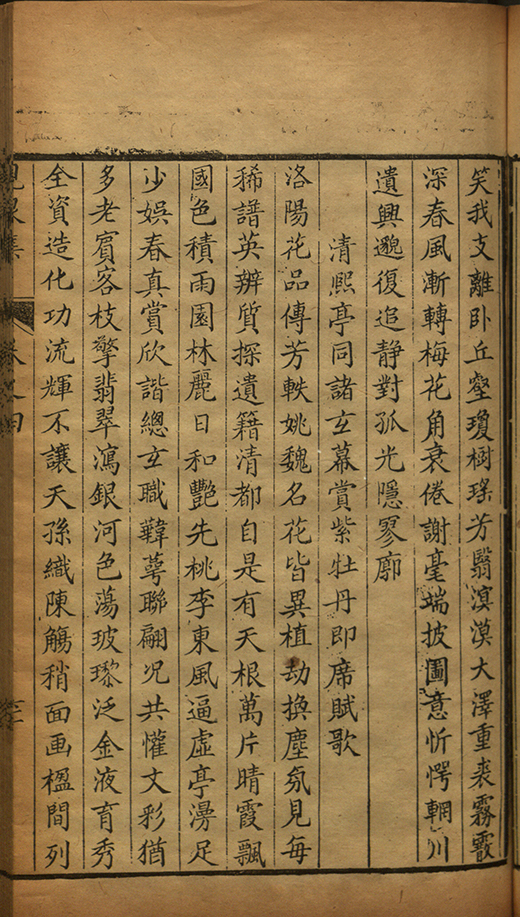 笑我支離卧丘壑瓊樹瑤芳翳溟漠大澤重裘霧霰
深春風漸轉梅花角衰倦謝毫端披圖意忻愕輞川
遺興邈復追静對孤光隱寥廓
清熈亭同諸玄幕賞紫牡丹即席賦歌
洛陽花品傳芳軼姚魏名花皆異植劫換塵氛見每
稀譜英辨質探遺籍清都自是有天根萬片晴霞飄
國色積雨園林麗日和艷先桃李東風逼虛亭滂足
少娛春真賞欣諧總玄職韡萼聯翩况共懽文彩猶
多老賓客枝擎翡翠瀉銀河色蕩玻瓈泛金液育秀
全資造化功流輝不讓天孫織陳觴稍面画楹間列